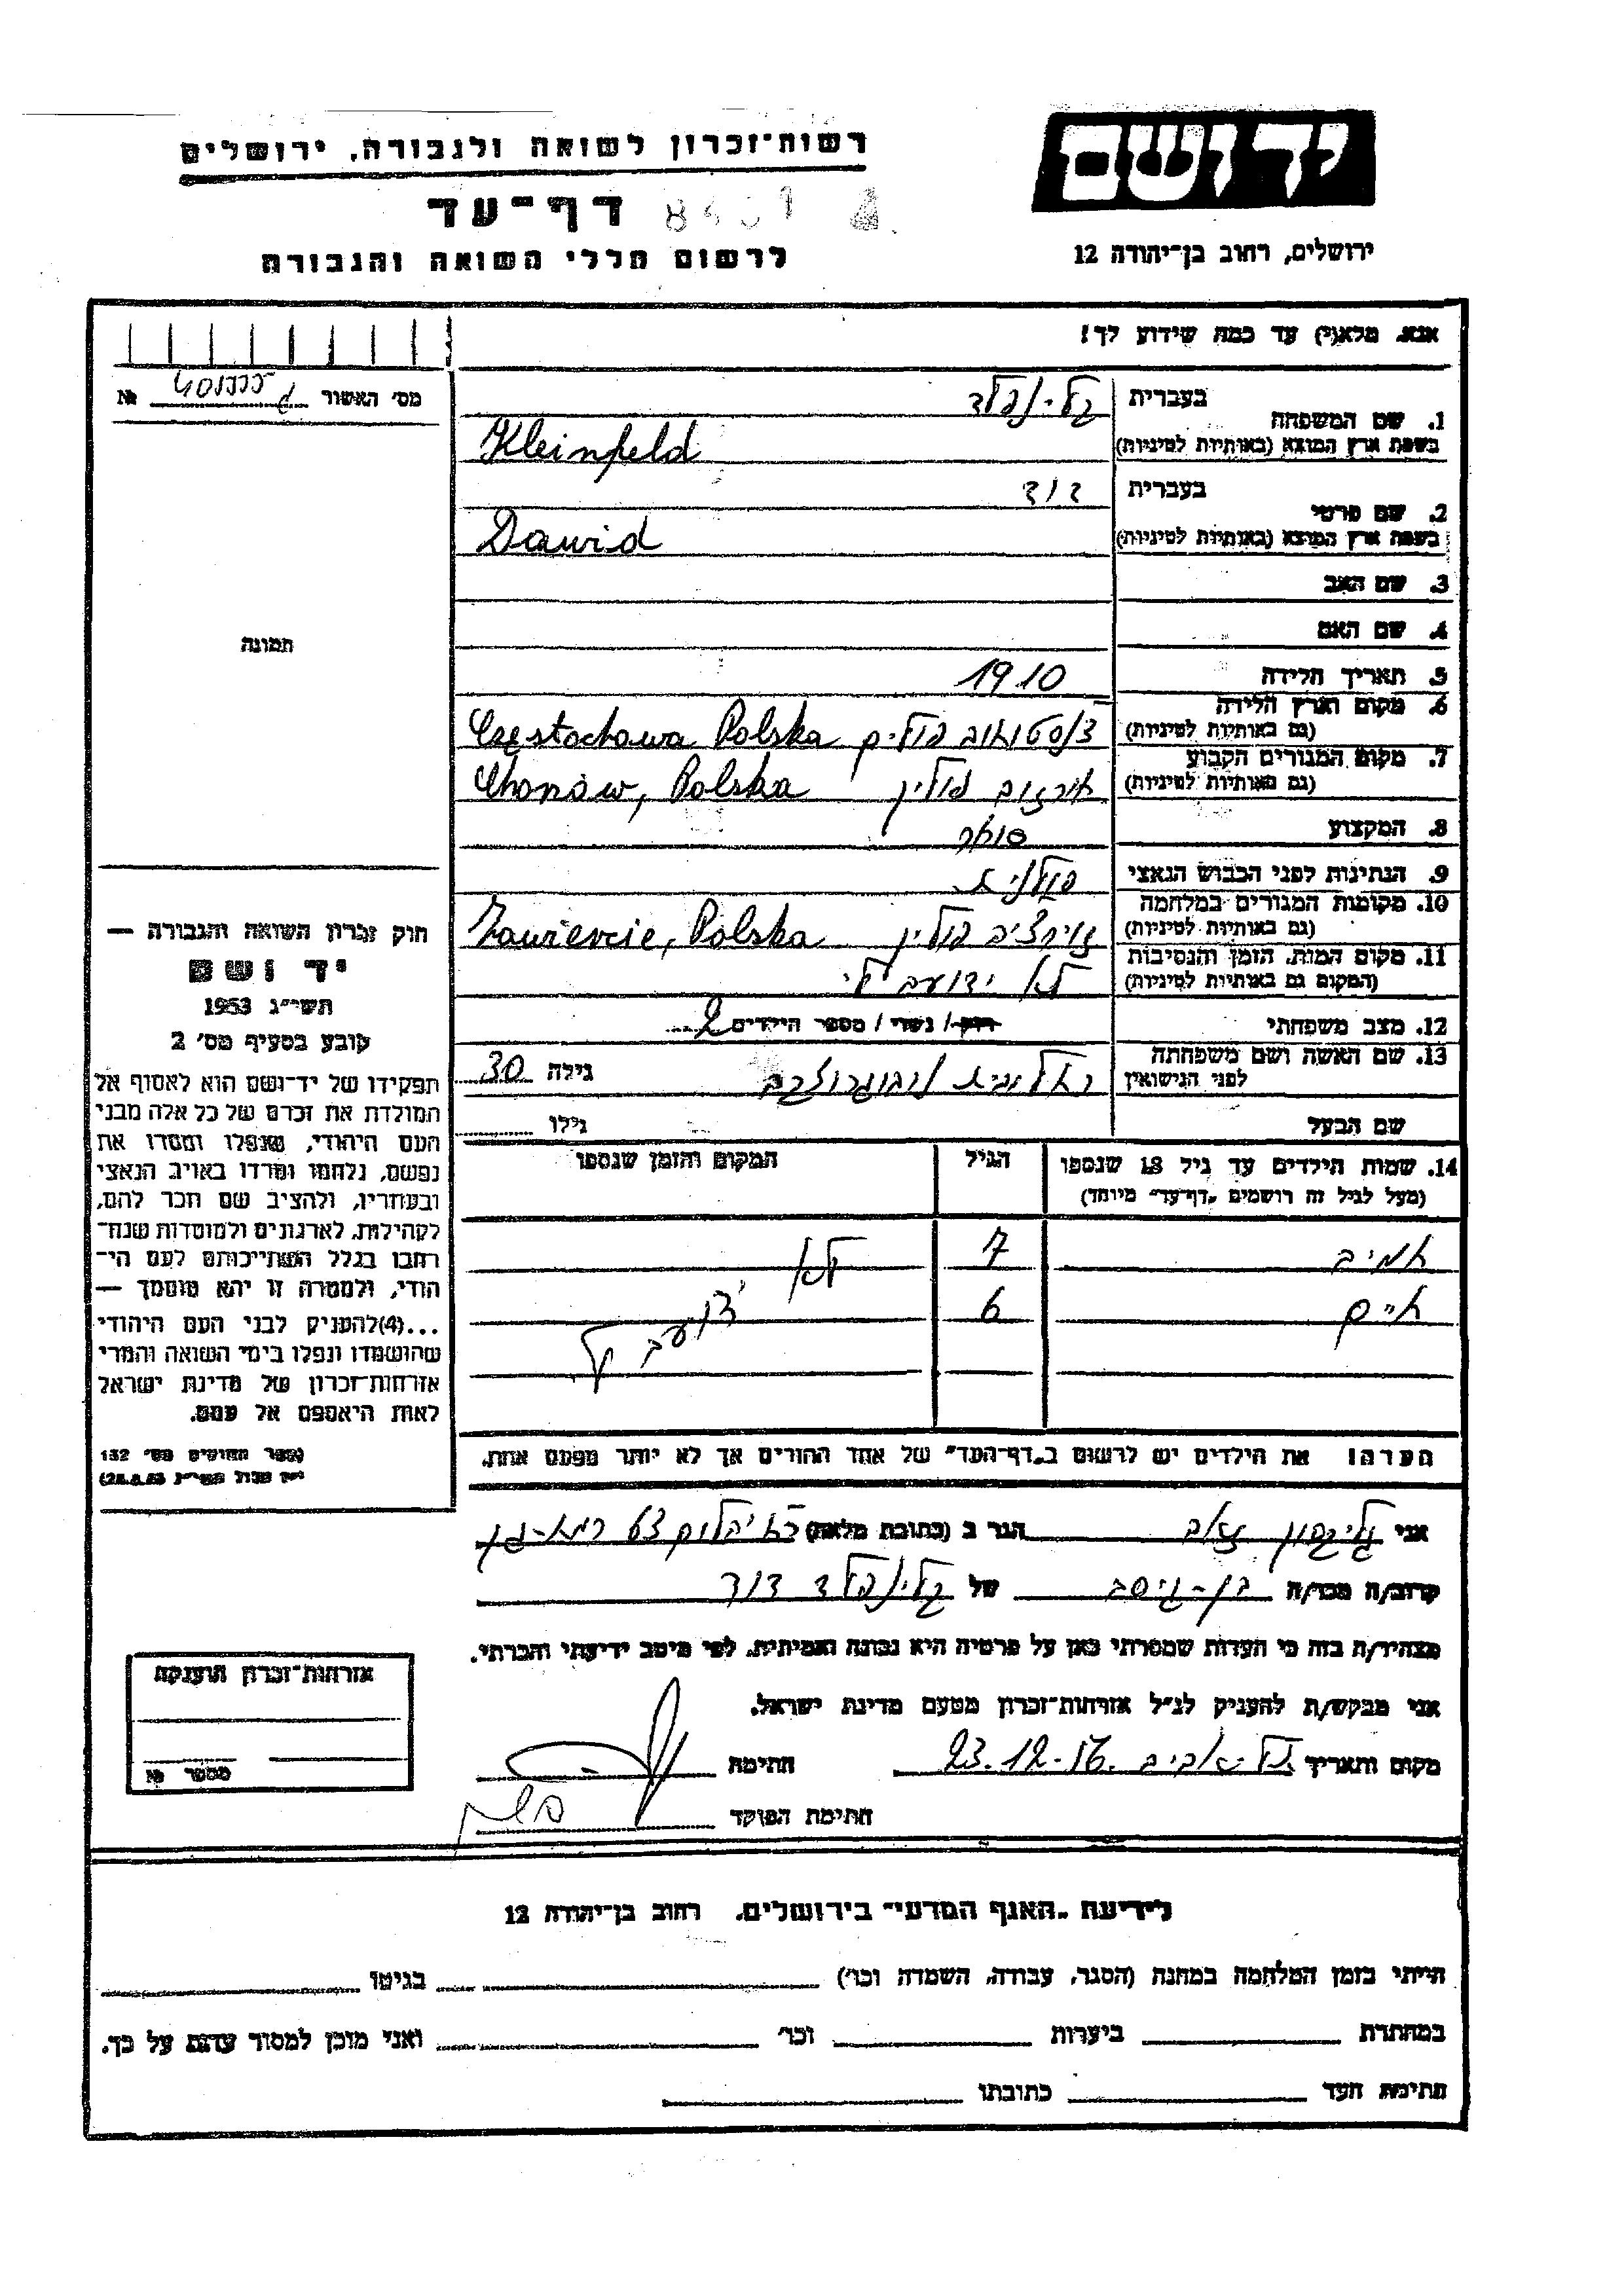 יד ושם
ירושלים, רחוב בן־יהודה 12
רשות־זכרון לשואה ולגבורה, ירושלים
דף־עד
לרשום חללי השואה והגבורה
אנא, מלא(י) עד כמה שידוע לך!
מס׳ האשור №
1. שם המשפחה
בעברית קלינפלד
בשפת ארץ המוצא (באותיות לטיניות) Kleinfeld
2. שם פרטי
בעברית דוד
בשפת ארץ המוצא (באותיות לטיניות) Dawid
3. שם האב
4. שם האם
תמונה
5. תאריך הלידה 1910
6. מקום וארץ הלידה
(גם באותיות לטיניות) פולין Częstochowa Polska
7. מקום המגורים הקבוע
(גם באותיות לטיניות) פולין Chonów, Polska
8. המקצוע סוחר
9. הנתינות לפני הכבוש הנאצי פולנית
10. מקומות המגורים במלחמה
(גם באותיות לטיניות) פולין Zawiercie, Polska
11. מקום המות, הזמן והנסיבות
(המקום גם באותיות לטיניות) לא ידוע לי
12. מצב משפחתי רווק / נשוי / מספר הילדים 2
13. שם האשה ושם משפחתה
לפני הנישואין גילה 30
שם הבעל גילו
14. שמות הילדים עד גיל 18 שנספו
(מעל לגיל זה רושמים "דף־עד" מיוחד)
הגיל
המקום והזמן שנספו
7 לא
חיים 6 ידוע לי
הערה! את הילדים יש לרשום ב"דף־העד" של אחד ההורים אך לא יותר מפעם אחת.
חוק זכרון השואה והגבורה —
יד ושם
תשי״ג 1953
קובע בסעיף מס׳ 2
תפקידו של יד־ושם הוא לאסוף אל
המולדת את זכרם של כל אלה מבני
העם היהודי, שנפלו ומסרו את
נפשם, נלחמו ומרדו באויב הנאצי
ובעוזריו, ולהציב שם וזכר להם,
לקהילות, לארגונים ולמוסדות שנח־
רבו בגלל השתייכותם לעם הי־
הודי, ולמטרה זו יהא מוסמך —
...(4) להעניק לבני העם היהודי
שהושמדו ונפלו בימי השואה והמרי
אזרחות־זכרון של מדינת ישראל
לאות היאספם אל עמם.
(ספר החוקים מס׳ 132
אני זאב הגר ב (כתובת מלאה) רמת-גן
קרוב/ה מכר/ה בן-גיסה של קלינפלד דוד
מצהיר/ה בזה כי העדות שמסרתי כאן על פרטיה היא נכונה ואמיתית, לפי מיטב ידיעתי והכרתי.
אני מבקש/ת להעניק לנ״ל אזרחות־זכרון מטעם מדינת ישראל.
מקום ותאריך תל-אביב 23.12.56 חתימה
חתימת הפוקד
אזרחות־זכרון הוענקה
מספר №
לידיעת "האגף המדעי" בירושלים, רחוב בן־יהודה 12
הייתי בזמן המלחמה במחנה (הסגר, עבודה, השמדה וכו׳) בגיטו
במחתרת ביערות וכו׳ ואני מוכן למסור עדות על כך.
חתימת העד כתובתו